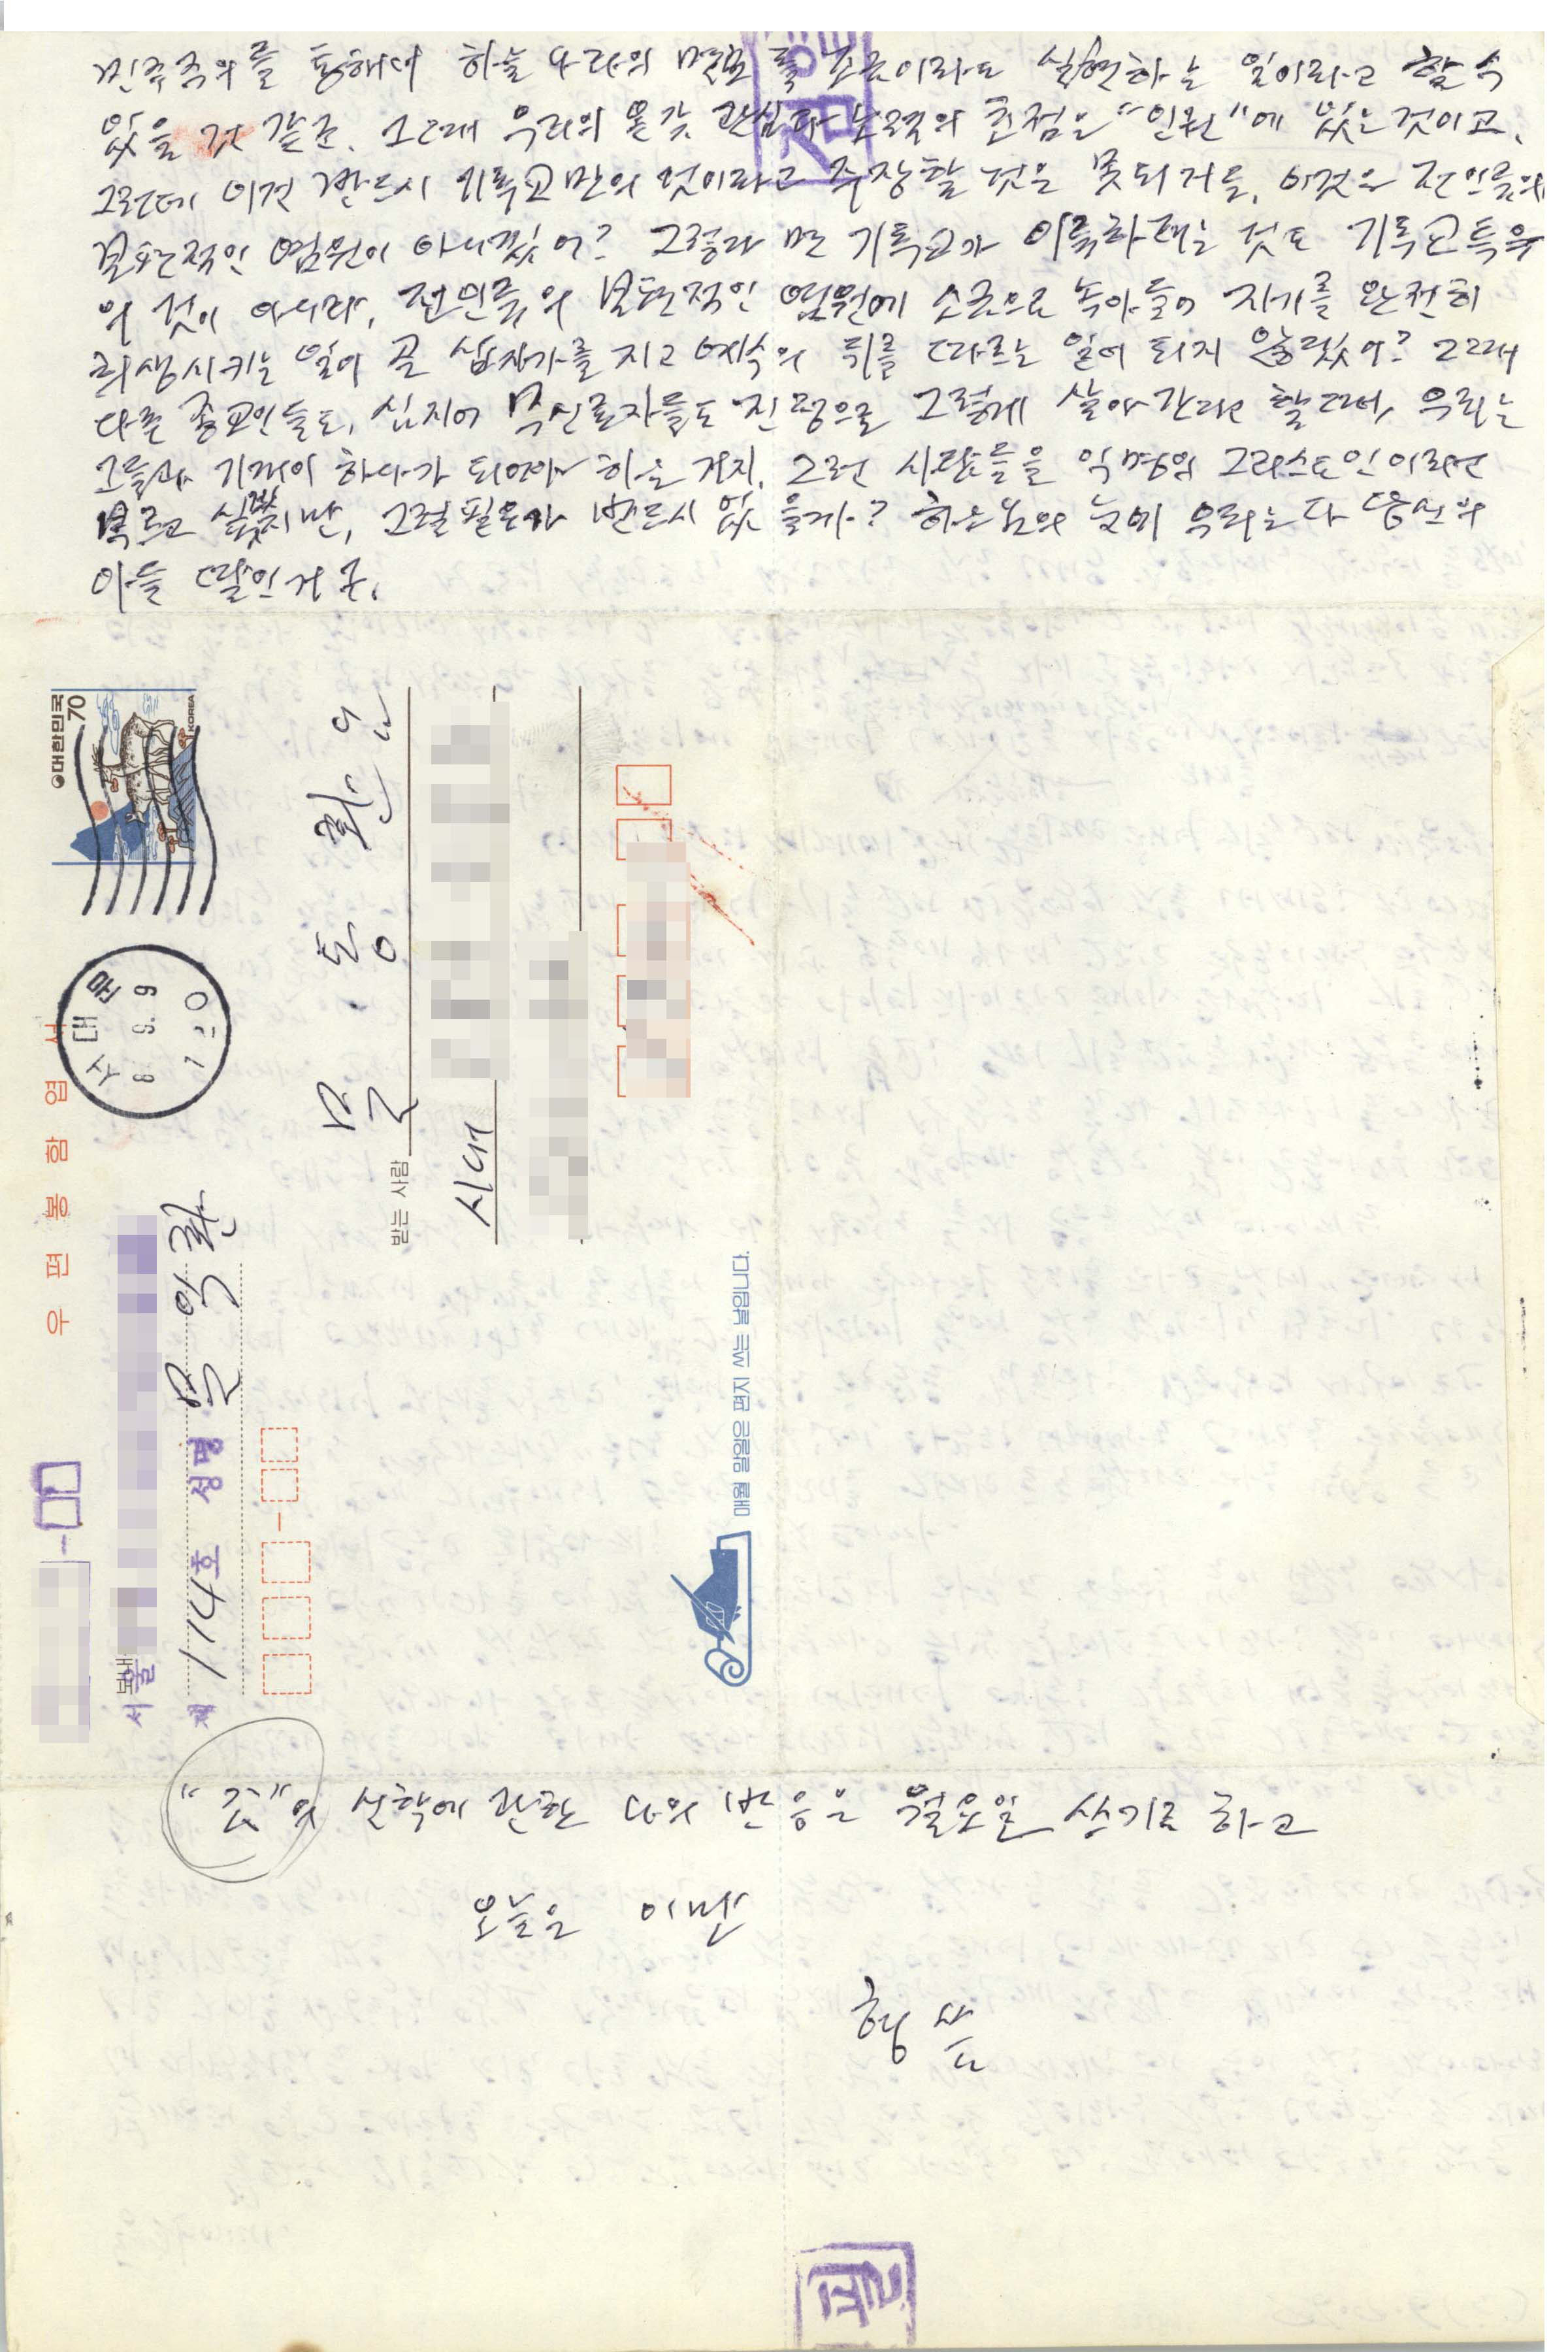 민주주의를 통해서 하늘 나라의 면모를 조금이라도 실현하는 일이라고 할 수
있을 것 같군. 그래 우리의 온갖 관심과 노력의 초점은 "인권"에 있는 것이고,
그런데 이건 반드시 기독교만의 것이라고 주장할 것은 못되거든, 이것은 전인류의
보편적인 염원이 아니겠어? 그렇다면 기독교가 이룩하려는 것도 기독교 특유
의 것이 아니라, 전인류의 보편적인 염원에 소금으로 녹아들어 자기를 완전히
희생시키는 일이 곧 십자가를 지고 예수의 뒤를 따르는 일이 되지 않겠어? 그래
다른 종교인들도, 심지어 무신론자들도 진정으로 그렇게 살아간다고 할 때, 우리는
그들과 기꺼이 하나가 되어야 하는 거지. 그런 사람들을 익명의 그리스도인이라고
부르고 싶겠지만, 그럴 필요가 반드시 있을까? 하느님의 눈에 우리는 다 당신의
아들 딸인 거군.
대한민국 70
KOREA
서대문
우편봉함엽서
받는 사람 문동환 앞
시내
보내
서울
제 114호 성명 문익환
매월 말일은 편지 쓰는 날입니다.
"恨"의 신학에 관한 나의 반응은 월요일 쓰기로 하고
오늘은 이만
형 씀